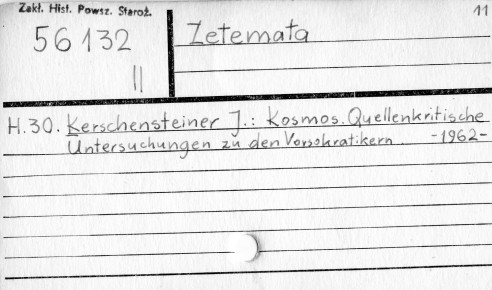 Zakł. Hist. Powsz. Staroż.
11
56132
Zetemata
II
H.30. Kerschensteiner J.: Kosmos. Quellenkritische
Untersuchungen zu den Vorsokratikern. -1962-